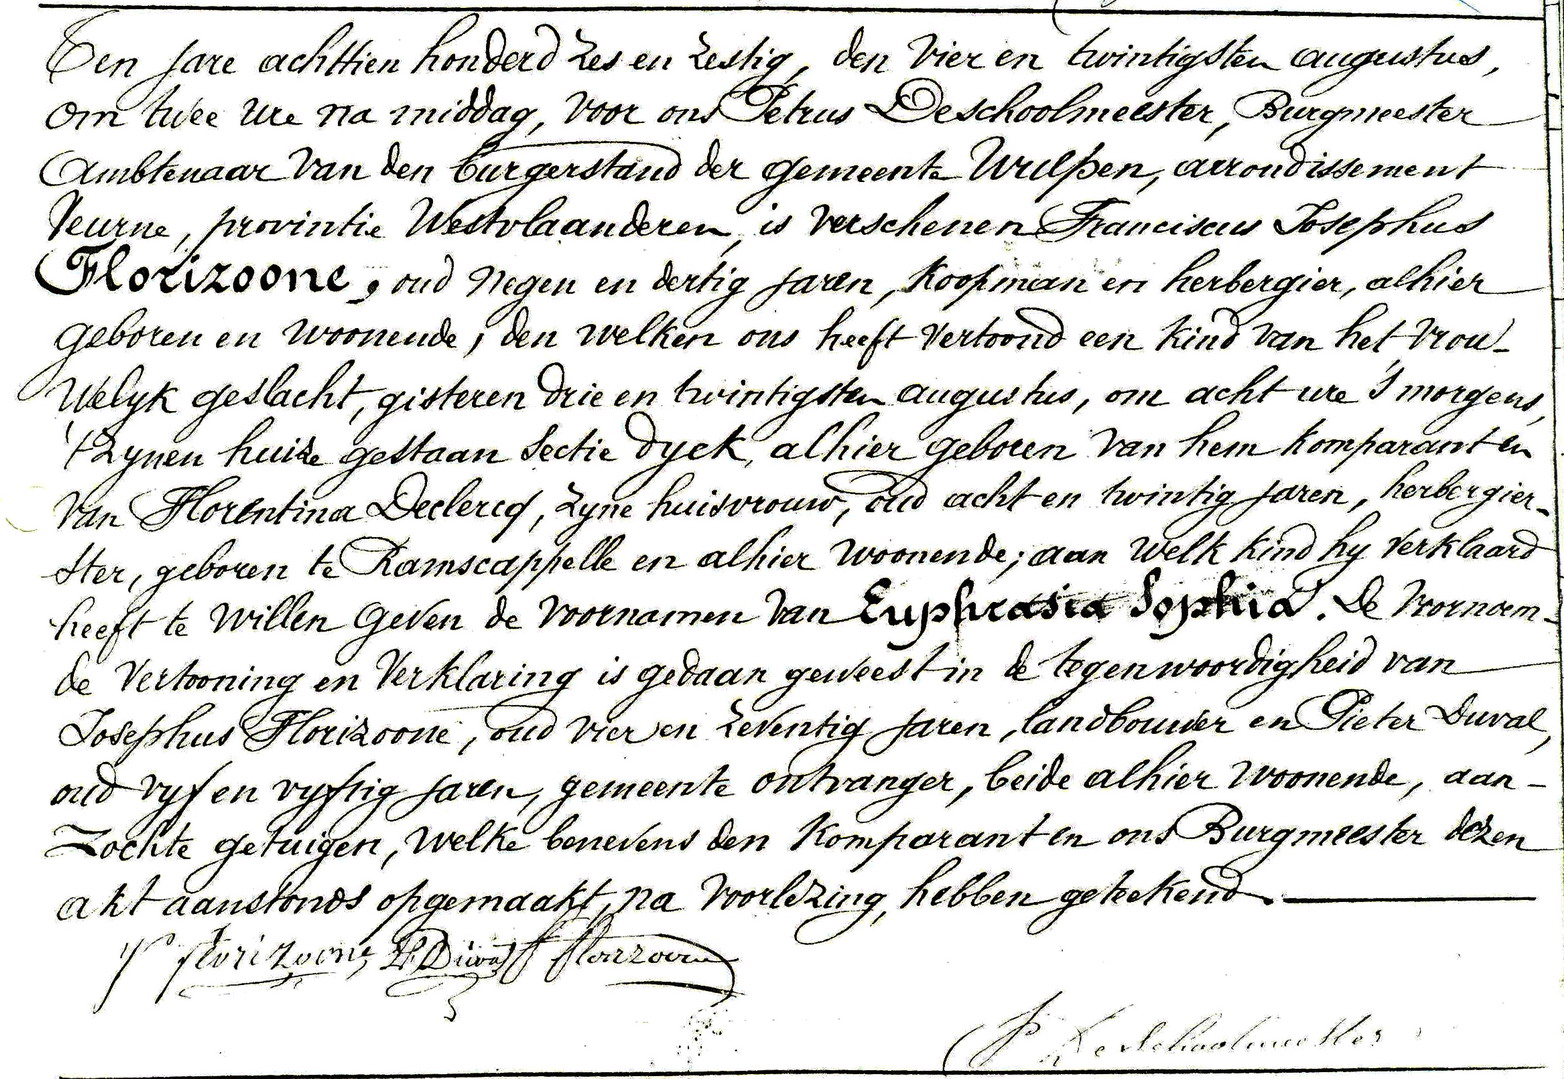 Ten jare achttien honderd zes en zestig, den vier en twintigsten augustus,
om twee ure na middag, voor ons Petrus Deschoolmeester, Burgmeester
Ambtenaar van den burgerstand der gemeente Wulpen, arrondissement
Veurne, provintie Westvlaanderen, is verschenen Franciscus Josephus
Florizoone, oud negen en dertig jaren, koopman en herbergier, alhier
geboren en woonende; den welken ons heeft vertoond een kind van het vrou-
welyk geslacht, gisteren drie en twintigsten augustus, om acht ure 's morgens,
't zynen huize gestaan Sectie dyck, alhier geboren van hem komparant en
van Florentina Declercq, zyne huisvrouw, oud acht en twintig jaren, herbergier-
ster, geboren te Ramscappelle en alhier woonende; aan welk kind hy verklaard
heeft te willen geven de voornamen van Euphrasia Sophia. De voornoem-
de vertooning en verklaring is gedaan geweest in de tegenwoordigheid van
Josephus Florizoone, oud vier en zeventig jaren, landbouwer en Pieter Duval,
oud vyf en vyftig jaren, gemeente ontvanger, beide alhier woonende, aan-
zochte getuigen, welke benevens den komparant en ons Burgmeester dezen
akt aanstonds opgemaakt, na voorlezing, hebben geteekend.
florizoone P. Duval J florizoone
P Deschoolmeester